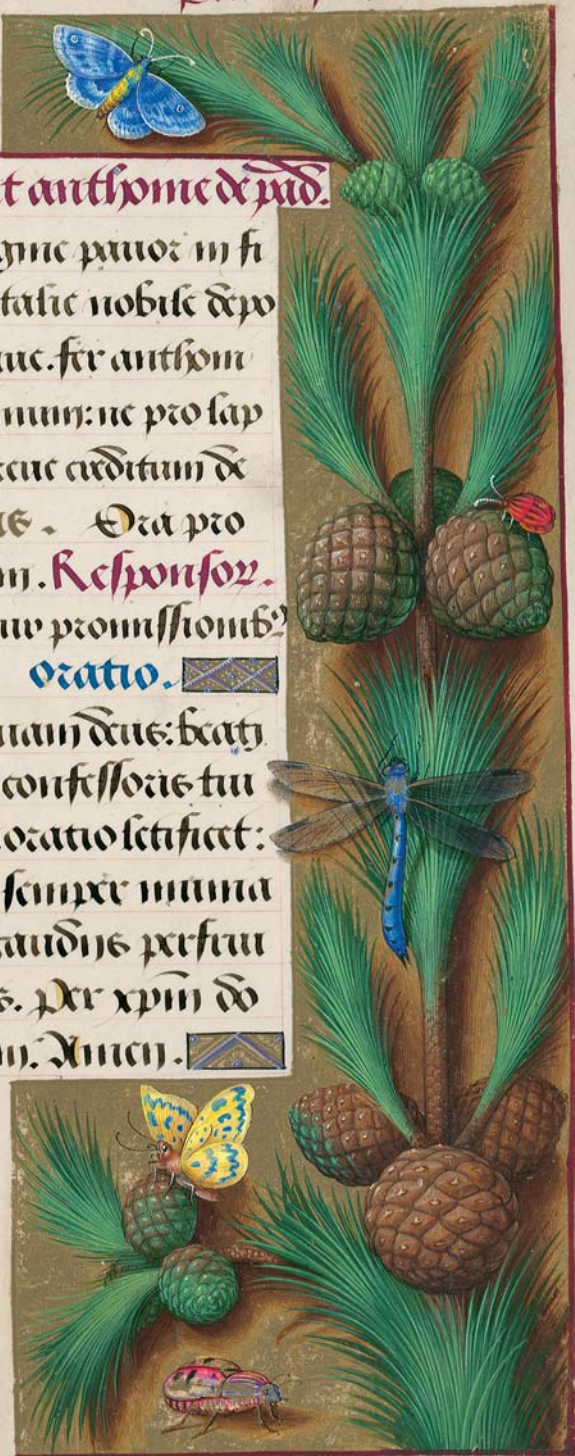 t anthonie de pad.
gine pauor in fi
talie nobile depo
ue. fer anthoni
nium: ne pro lap
reue creditum de
Ora pro
m. Responsor.
ur promissionibꝰ
oratio.
uam deus: beati
confessoris tui
oratio letificet:
semper munia
gaudijs perfrui
s. Per xp̄m do
m. Amen.